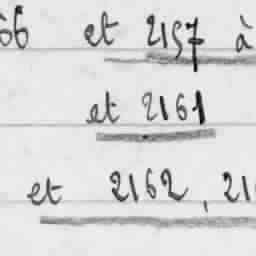 66 et 2157 à
et 2161
et 2162, 21